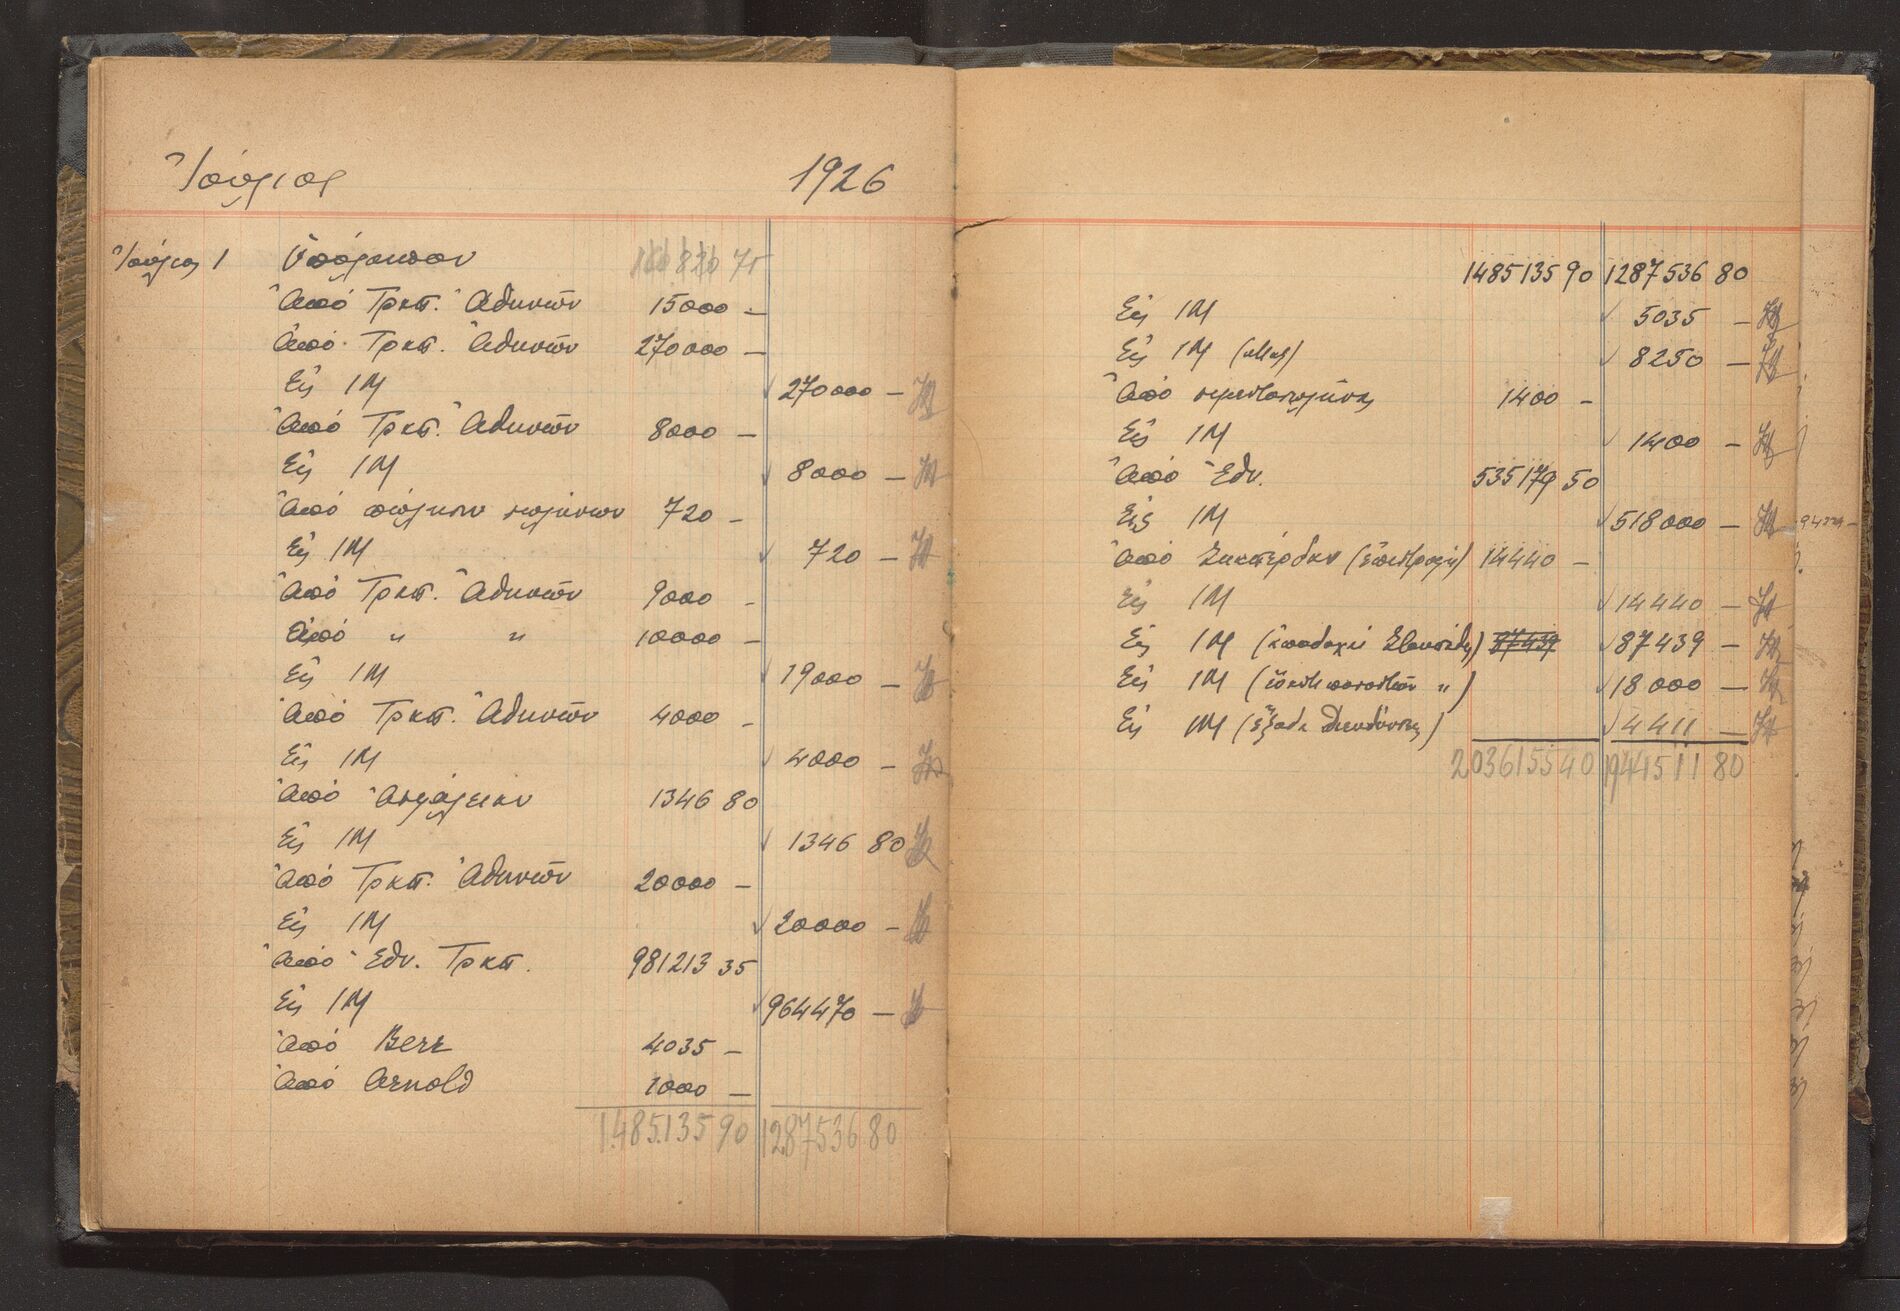 Ἰούλιος 1926
Ἰούλιος 1 Ὑπόλοιπον 160 820 75
Ἀπό Τραπ. Ἀθηνῶν 15000 —
Ἀπό Τραπ. Ἀθηνῶν 270000 —
Εἰς 1Μ 270000 —
Ἀπό Τραπ. Ἀθηνῶν 8000 —
Εἰς 1Μ 8000 —
Ἀπό πώλησιν σωλήνων 720 —
Εἰς 1Μ 720 —
Ἀπό Τραπ. Ἀθηνῶν 9000 —
Ἀπό " " 10000 —
Εἰς 1Μ 19000 —
Ἀπό Τραπ. Ἀθηνῶν 4000 —
Εἰς 1Μ 4000 —
Ἀπό Ἀσφάλειαν 1346 80
Εἰς 1Μ 1346 80
Ἀπό Τραπ. Ἀθηνῶν 20000 —
Εἰς 1Μ 20000 —
Ἀπό Ἐθν. Τραπ. 981213 35
Εἰς 1Μ 964470 —
Ἀπό Berr 4035 —
Ἀπό Arnold 1000 —
1.485.135 90 1287536 80
1485135 90 1287536 80
Εἰς 1Μ 5035 —
Εἰς 1Μ 8250 —
Ἀπό 1400 —
Εἰς 1Μ 1400 —
Ἀπό Ἐθν. 535179 50
Εἰς 1Μ 518000 —
Ἀπό (ἐπιστροφή) 14440 —
Εἰς 1Μ 14440 —
Εἰς 1Μ 87439 87439 —
Εἰς 1Μ 18000 —
Εἰς 1Μ (ἔξοδα Διευθύνσεως) 4411 —
2036155 40 1941511 80